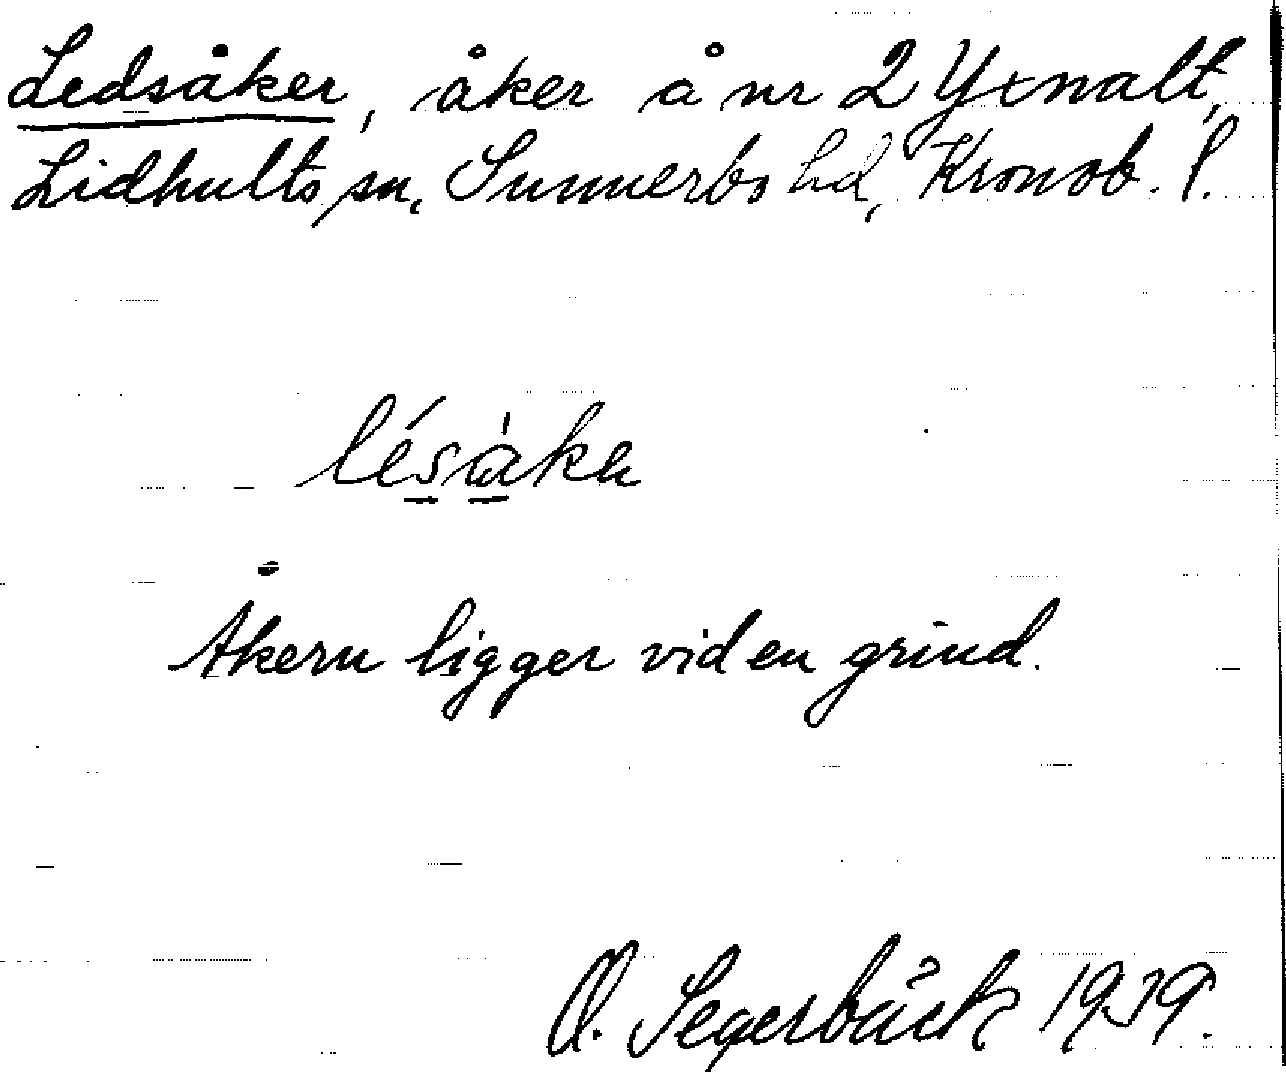 Ledsåker, åker å nr 2 Yxnalt,
Lidhults sn, Sunnerbo hd, Kronob. l.
lésàka
Åkern ligger vid en grind.
O. Segerbäck 1939.